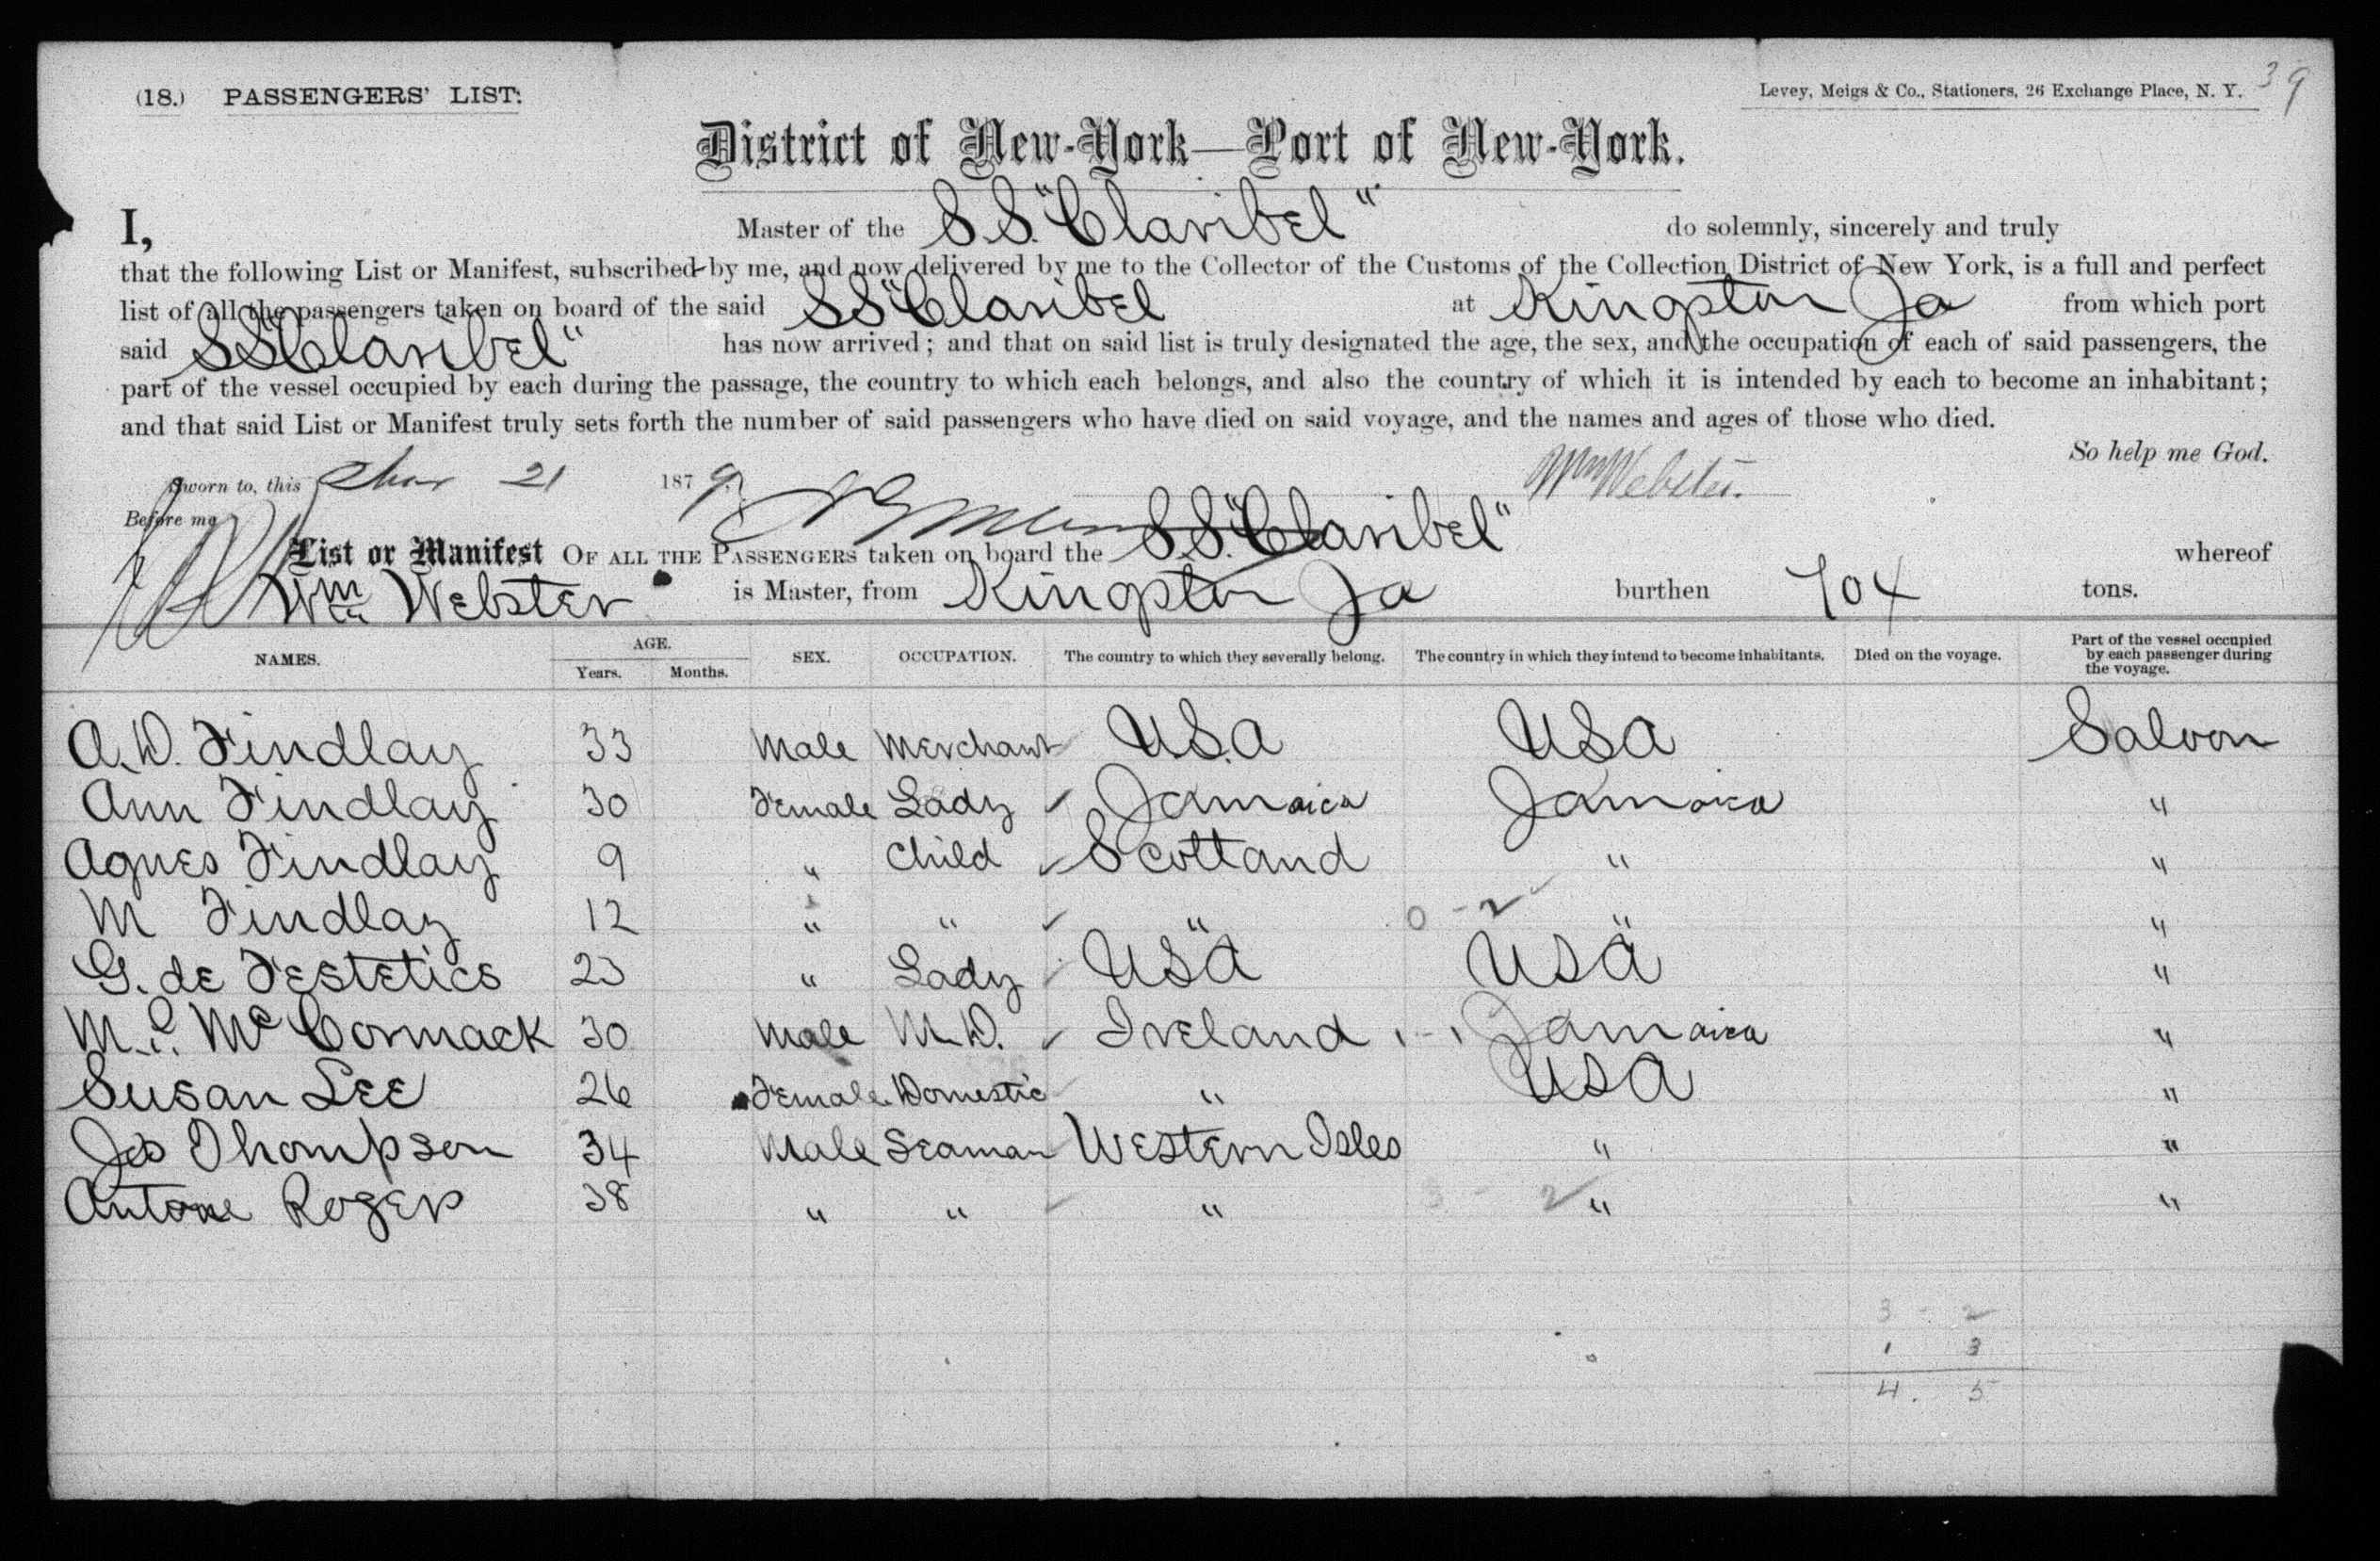 (18.) PASSENGERS' LIST.
Levey, Meigs & Co., Stationers, 26 Exchange Place, N. Y.
39
District of New-York—Port of New-York.
I, Master of the S.S. "Claribel" do solemnly, sincerely and truly
that the following List or Manifest, subscribed by me, and now delivered by me to the Collector of the Customs of the Collection District of New York, is a full and perfect
list of all the passengers taken on board of the said SS "Claribel at Kingston Ja from which port
said SS "Claribel" has now arrived; and that on said list is truly designated the age, the sex, and the occupation of each of said passengers, the
part of the vessel occupied by each during the passage, the country to which each belongs, and also the country of which it is intended by each to become an inhabitant;
and that said List or Manifest truly sets forth the number of said passengers who have died on said voyage, and the names and ages of those who died.
So help me God.
Sworn to, this Mar 21 1879 Wm Webster.
Before me
List or Manifest OF ALL THE PASSENGERS taken on board the S.S. "Claribel" whereof
Wm Webster is Master, from Kingston Ja burthen 704 tons.
NAMES. AGE. Years. Months. SEX. OCCUPATION. The country to which they severally belong. The country in which they intend to become inhabitants. Died on the voyage. Part of the vessel occupied by each passenger during the voyage.
A.D. Findlay 33 Male Merchant U.S.a USa Saloon
Ann Findlay 30 Female Lady Jamaica Jamaica "
Agnes Findlay 9 " Child Scotland " "
M Findlay 12 " " " 0 - 2 " "
G. de Festetics 23 " Lady USa USa "
M.C. McCormack 30 Male M.D. Ireland 1 - 1 Jamaica "
Susan Lee 26 Female Domestic " USA "
Jas Thompson 34 Male Seaman Western Isles " "
Antone Rogers 38 " " " 3 - 2 " "
3 - 2
1 3
4. 5